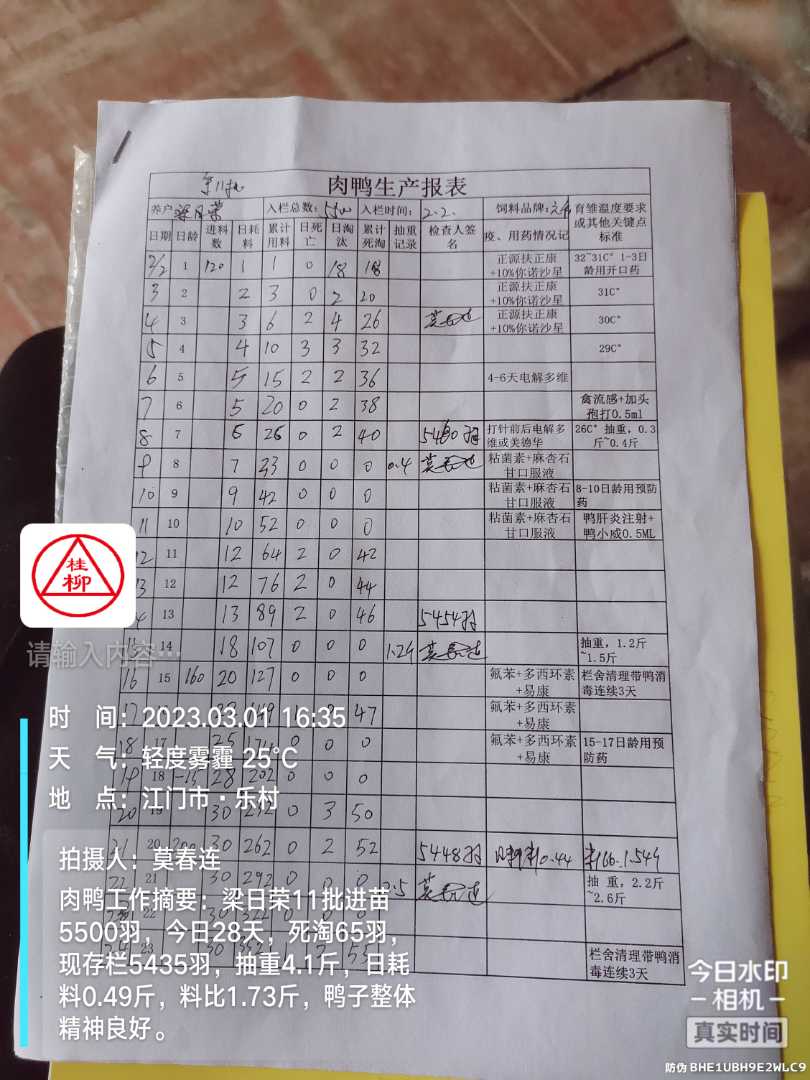 第11批 肉鸭生产报表
养户 梁日荣 入栏总数: 5500 入栏时间: 2.2. 饲料品牌: 育雏温度要求或其他关键点标准
日期 日龄 进料数 日耗料 累计用料 日死亡 日淘汰 累计死淘 抽重记录 检查人签名 疫、用药情况记
2/2 1 120 1 1 0 18 18 正源扶正康+10%你诺沙星 32~31C° 1-3日龄用开口药
3 2 2 3 0 2 20 正源扶正康+10%你诺沙星 31C°
4 3 3 6 2 4 26 莫春连 正源扶正康+10%你诺沙星 30C°
5 4 4 10 3 3 32 29C°
6 5 5 15 2 2 36 4-6天电解多维
7 6 5 20 0 2 38 禽流感+加头孢打0.5ml
8 7 6 26 0 2 40 5460羽 打针前后电解多维或美德华 26C° 抽重，0.3斤~0.4斤
9 8 7 33 0 0 0 0.4 莫春连 粘菌素+麻杏石甘口服液
10 9 9 42 0 0 0 粘菌素+麻杏石甘口服液 8-10日龄用预防药
11 10 10 52 0 0 0 粘菌素+麻杏石甘口服液 鸭肝炎注射+鸭小咸0.5ML
12 11 12 64 2 0 42
13 12 12 76 2 0 44
13 13 89 2 0 46 5454羽
14 18 107 0 0 0 1.24 莫春连 抽重，1.2斤~1.5斤
16 15 160 20 127 0 0 0 氟苯+多西环素+易康 栏舍清理带鸭消毒连续3天
17 0 47 氟苯+多西环素+易康
18 17 25 0 0 0 氟苯+多西环素+易康 15-17日龄用预防药
19 18 -15 28 202 0 0 0
20 19 30 232 0 3 50
21 20 200 30 262 0 2 52 5448羽 0.44 1.549
21 30 292 0 0 0 莫春连 抽重，2.2斤~2.6斤
22 30 322 0 0 0
23 30 栏舍清理带鸭消毒连续3天
桂柳
请输入内容…
时 间：2023.03.01 16:35
天 气：轻度雾霾 25℃
地 点：江门市·乐村
拍摄人：莫春连
肉鸭工作摘要：梁日荣11批进苗
5500羽，今日28天，死淘65羽，
现存栏5435羽，抽重4.1斤，日耗
料0.49斤，料比1.73斤，鸭子整体
精神良好。
今日水印
-相机-
真实时间
防伪 BHE1UBH9E2WLC9